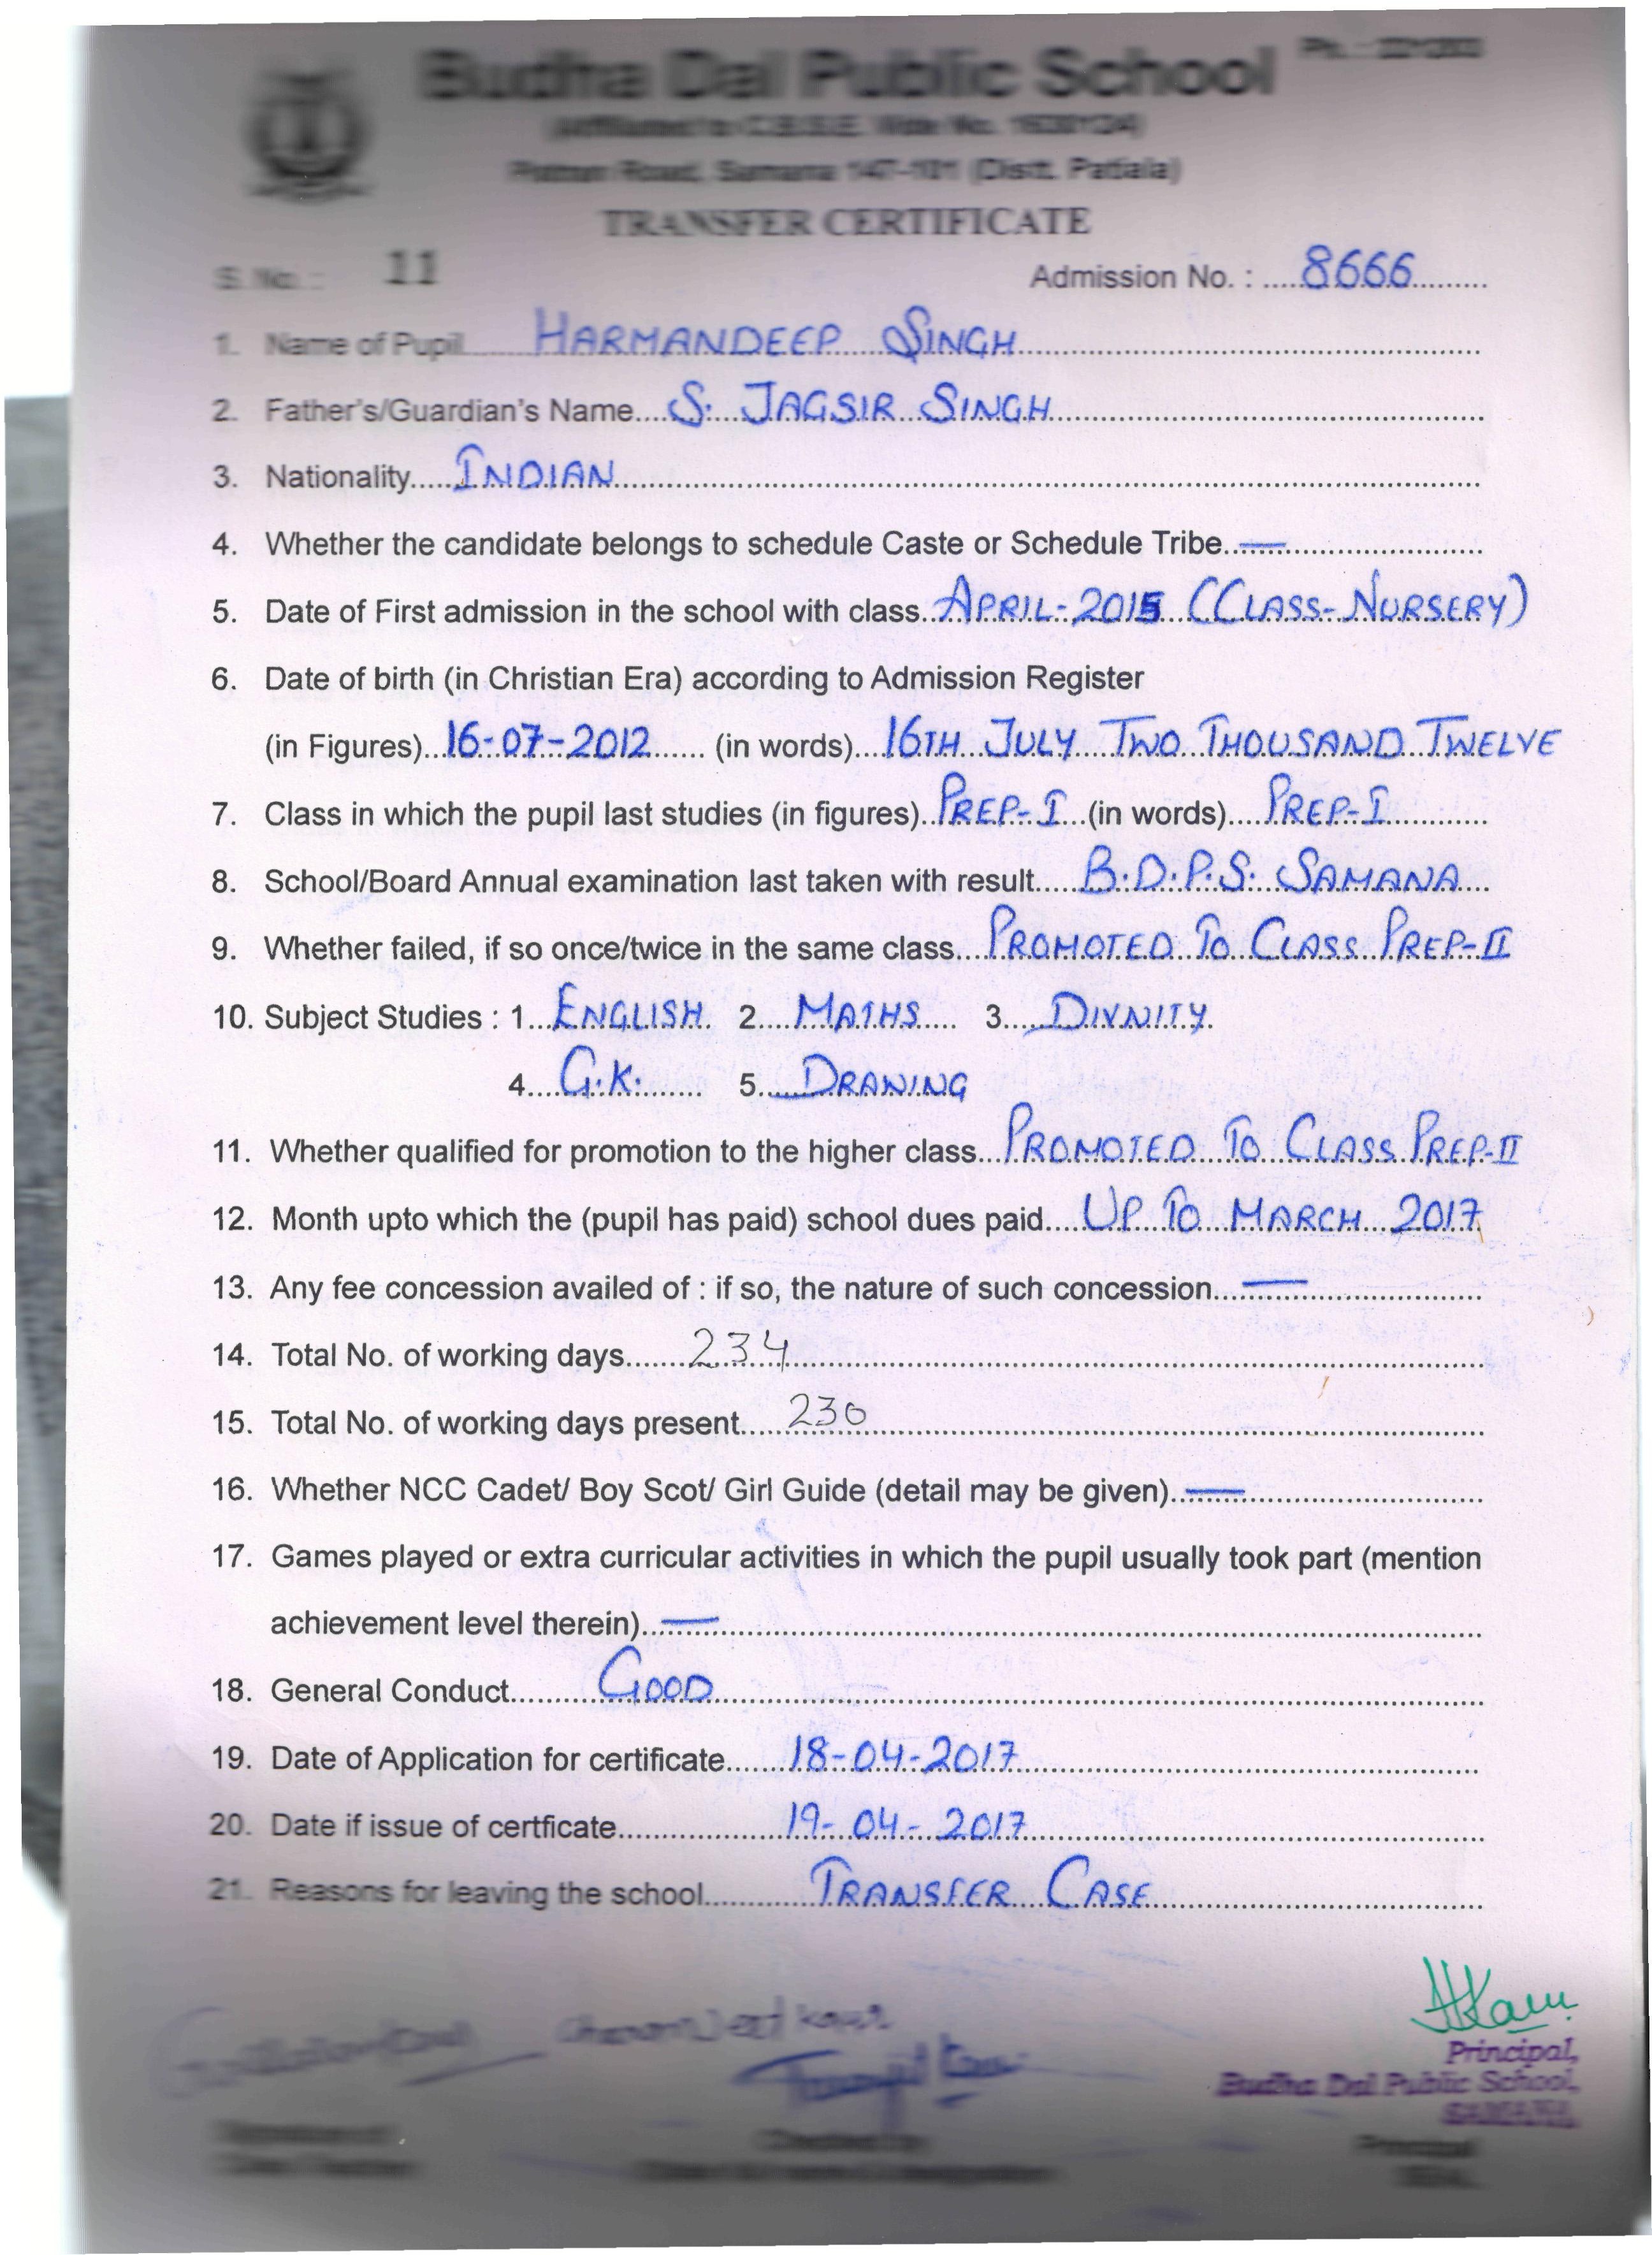 Budha Dal Public School
(Affiliated to C.B.S.E. Vide No. 1630124)
Road, Samana 147-101 (Distt. Patiala)
TRANSFER CERTIFICATE
S. No. : 11 Admission No. : 8666
1. Name of Pupil HARMANDEEP SINGH
2. Father's/Guardian's Name S. JAGSIR SINGH
3. Nationality INDIAN
4. Whether the candidate belongs to schedule Caste or Schedule Tribe —
5. Date of First admission in the school with class APRIL-2015 (CLASS-NURSERY)
6. Date of birth (in Christian Era) according to Admission Register
(in Figures) 16-07-2012 (in words) 16TH JULY TWO THOUSAND TWELVE
7. Class in which the pupil last studies (in figures) PREP-I (in words) PREP-I
8. School/Board Annual examination last taken with result B.D.P.S. SAMANA
9. Whether failed, if so once/twice in the same class PROMOTED TO CLASS PREP-II
10. Subject Studies : 1 ENGLISH 2 MATHS 3 DIVNITY
4 G.K. 5 DRAWING
11. Whether qualified for promotion to the higher class PROMOTED TO CLASS PREP-II
12. Month upto which the (pupil has paid) school dues paid UP TO MARCH 2017
13. Any fee concession availed of : if so, the nature of such concession —
14. Total No. of working days 234
15. Total No. of working days present 230
16. Whether NCC Cadet/ Boy Scot/ Girl Guide (detail may be given) —
17. Games played or extra curricular activities in which the pupil usually took part (mention
achievement level therein) —
18. General Conduct GOOD
19. Date of Application for certificate 18-04-2017
20. Date if issue of certficate 19-04-2017
21. Reasons for leaving the school TRANSFER CASE
Kaur
Principal,
Budha Dal Public School,
SAMANA
Principal